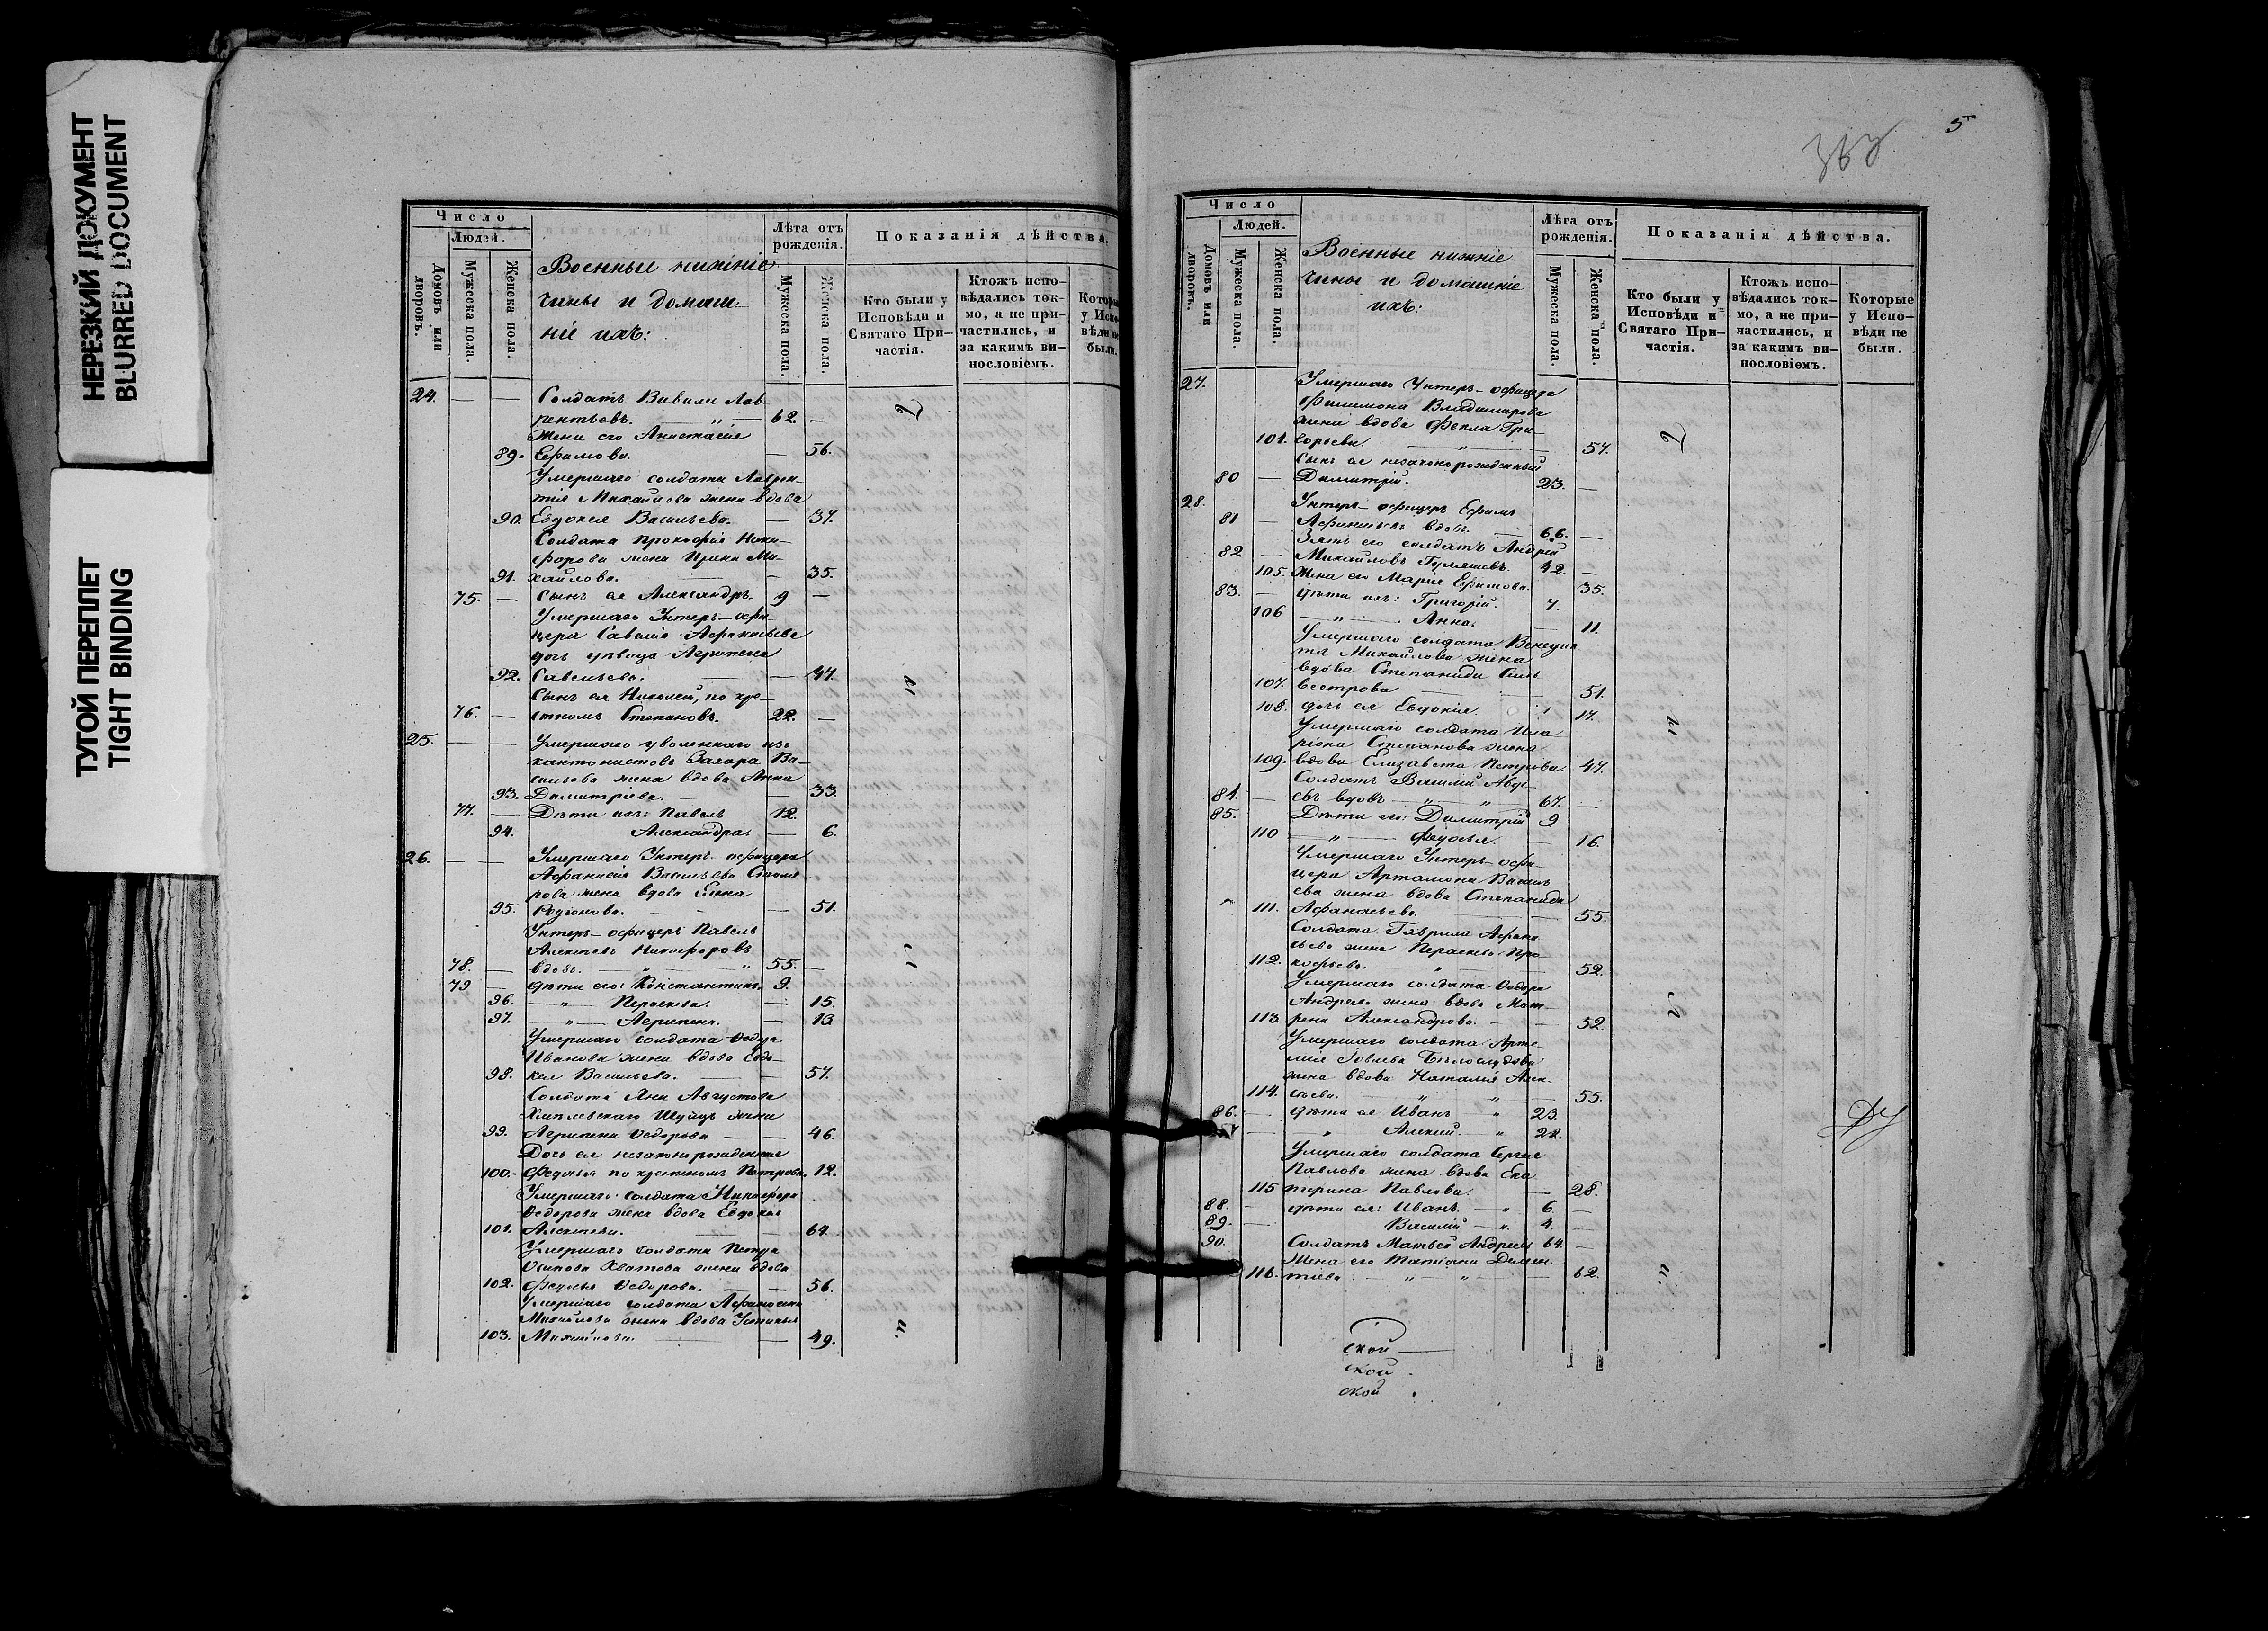 НЕРЕЗКИЙ ДОКУМЕНТ
BLURRED DOCUMENT
ТУГОЙ ПЕРЕПЛЕТ
TIGHT BINDING
Число
Людей.
Домовъ или дворовъ.
Мужеска пола.
Женска пола.
Военные нижніе
чины и домаш-
ніе ихъ:
Лѣта отъ рожденія.
Мужеска пола.
Женска пола.
Показанія дѣйства.
Кто были у Исповѣди и Святаго При-частія.
Ктожъ испо-вѣдались ток-мо, а не при-частились, и за какимъ ви-нословіемъ.
Которые у Испо-вѣди не были.
24. — — Солдатъ Вавила Лав-
рентьевъ. — „ — 62. —
Жена его Анастасія
89. Ефимова. — 56.
Умершаго солдата Лаврен-
тія Михайлова жена вдова
90. Евдокія Васильева. — 37.
Солдата Прокофія Ники-
форова жена Ирина Ми-
91. хайлова. — — 35.
75. — Сынъ ея Александръ. 9 —
Умершаго Унтеръ-офи-
цера Савелія Афанасьева
дочь дѣвица Агрипена
92. Савельева. — — 47.
Сынъ ея Николай, по кре-
76. — стномъ Степановъ. 22. —
25. — — Умершаго уволеннаго изъ
кантонистовъ Захара Ва-
сильева жена вдова Анна
93. Димитріева. — — 33.
77. — Дѣти ихъ: Павелъ 12.
94. Александра. — 6.
26. — — Умершаго Унтеръ-офицера
Афанасія Васильева Столя-
рова жена вдова Елена
95. Родіонова. — — 51.
Унтеръ-офицеръ Павелъ
Алексѣевъ Никифоровъ
78. — вдовъ. — „ — „ 55. —
79 — дѣти его: Константинъ. 9.
96. — „ Параскева. — 15.
97. — „ — Агрипена. — 13
Умершаго солдата Ѳедора
Иванова жена вдова Евдо-
98. кія Васильева. — — 57.
Солдата Яна Августова
жена
99. Агрипена Ѳедорова — — 46.
Дочь ея незаконорожденная
100. Федосья по крестномъ Петрова. 12.
Умершаго солдата Никифора
Ѳедорова жена вдова Евдокія
101. Алексѣева. — — 64.
Умершаго солдата Петра
Осипова Хватова жена вдова
102. Федосья Ѳедорова. — — 56.
Умершаго солдата Афанасія
Михайлова жена вдова Устинья
103. Михайлова. — — 49.
5
Число
Людей.
Домовъ или дворовъ.
Мужеска пола.
Женска пола.
Военные нижніе
чины и домашніе
ихъ:
Лѣта отъ рожденія.
Мужеска пола.
Женска пола.
Показанія дѣйства.
Кто были у Исповѣди и Святаго При-частія.
Ктожъ испо-вѣдались ток-мо, а не при-частились, и за какимъ ви-нословіемъ.
Которые у Испо-вѣди не были.
27. Умершаго Унтеръ-офицера
Филимона Владимирова
жена вдова Фекла Гри-
горьева. — 57.
Сынъ ея незаконорожденный
80 — Димитрій. 23. —
28. Унтеръ-офицеръ Ефимъ
81 — Афанасьевъ вдовъ. — 66. —
Зять его солдатъ Андрей
82 — Михайловъ 42. —
105. Жена его Марія Ефимова. 35.
83. — дѣти ихъ: Григорій. 7.
106 — „ — Анна. — 11.
Умершаго солдата Венедик-
та Михайлова жена
вдова Степанида Силь-
107. вестрова — 51.
108. дочь ея Евдокія. 17.
Умершаго солдата Ила-
ріона Степанова жена
109. вдова Елизавета Петрова. 47.
Солдатъ Василій Авде-
84. — евъ вдовъ — „ — „ 67. —
85. Дѣти его: Димитрій 9
110 — „ — Федосья. — 16.
Умершаго Унтеръ-офи-
цера Артамона Василь-
ева жена вдова Степанида
111. Афанасьева. — 55.
Солдата Гаврила Афана-
сьева жена Параскева Про-
112. кофьева. „ — 52.
Умершаго солдата Ѳедора
Андреева жена вдова Мат-
113. рена Александрова. — — 52.
Умершаго солдата Арте-
мія Бѣлослудова
жена вдова Наталія Алек-
114. сѣева. — „ „ — 55.
86. — дѣти ея Иванъ — „ 23
— „ Алексѣй. — „ 22.
Умершаго солдата Сергея
Павлова жена вдова Ека-
115 терина Павлова. — 28.
88. — дѣти ея: Иванъ — „ 6. —
89. — Василій — „ 4. —
90. Солдатъ Матвей Андреевъ 64. —
Жена его Татіана Демен-
116. тіева. — „ — „ — 62.
ской —
ской
ской